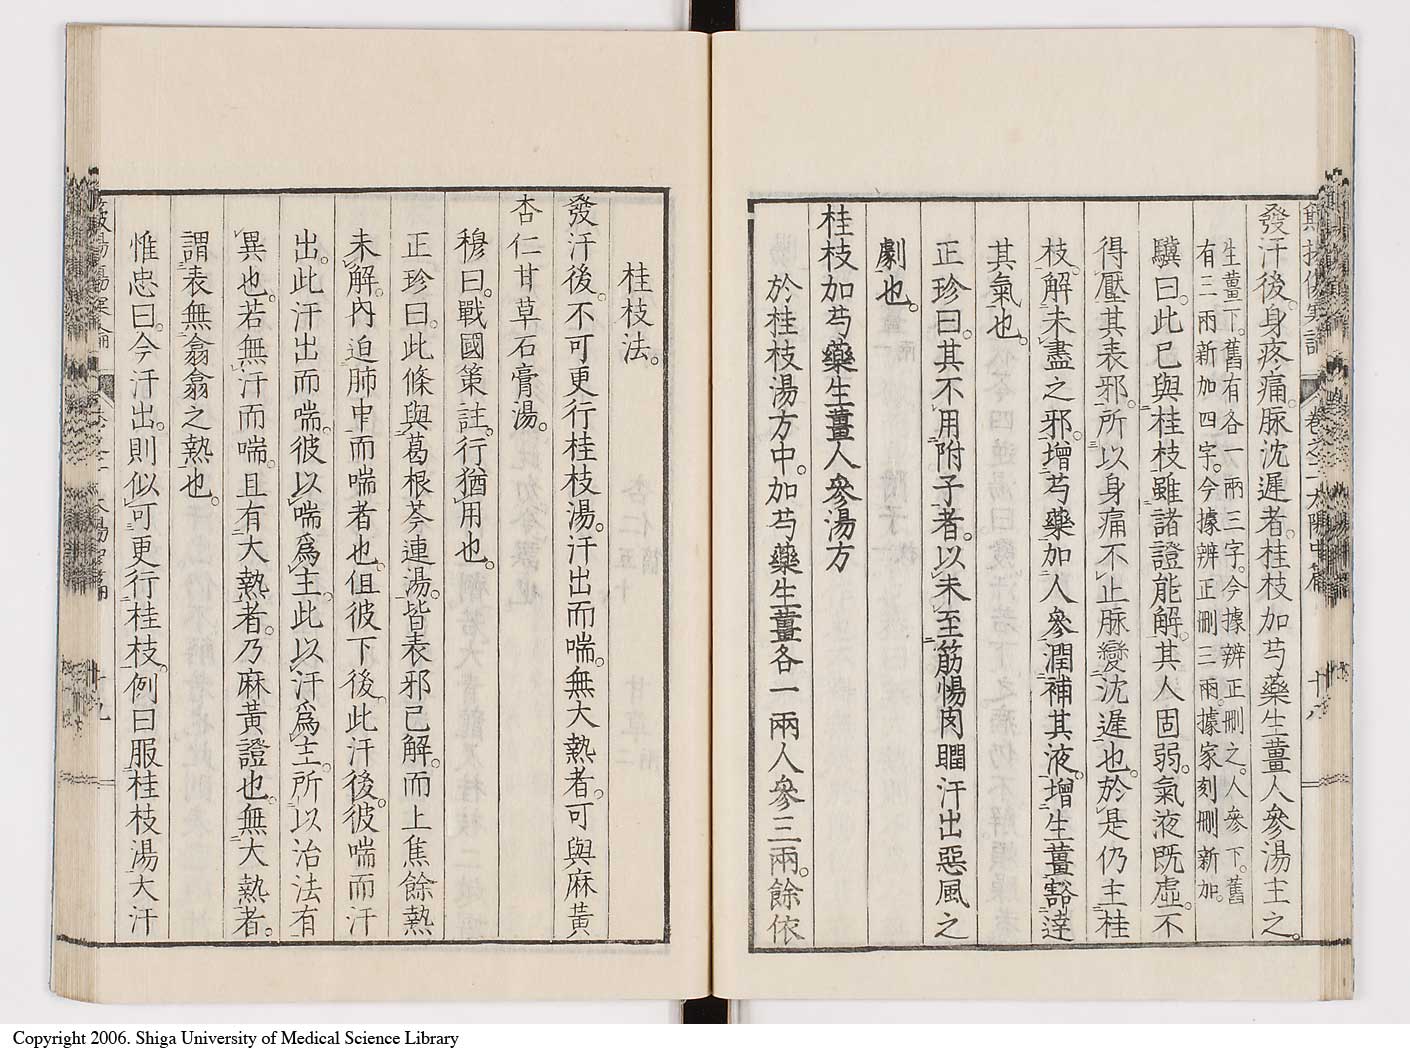 發汗後。身疼痛。脈沈遲者。桂枝加芍藥生薑人參湯主之。
生薑下。舊有各一兩三字。今據辨正刪之。人參下。舊
有三兩新加四字。今據辨正刪三兩。據家刻刪新加。
驥曰。此已與桂枝雖諸證能解。其人固弱。氣液既虛。不
得壓其表邪。所以身痛不止脈變沈遲也。於是仍主桂
枝。解未盡之邪。增芍藥加人參潤補其液。增生薑豁達
其氣也。
正珍曰。其不用附子者。以未至筋惕肉瞤汗出惡風之
劇也。
桂枝加芍藥生薑人參湯方
於桂枝湯方中。加芍藥生薑各一兩人參三兩。餘依
桂枝法。
發汗後。不可更行桂枝湯。汗出而喘。無大熱者。可與麻黃
杏仁甘草石膏湯。
穆曰。戰國策註。行猶用也。
正珍曰。此條與葛根芩連湯。皆表邪已解。而上焦餘熱
未解。內迫肺中而喘者也。但彼下後。此汗後。彼喘而汗
出。此汗出而喘。彼以喘爲主。此以汗爲主。所以治法有
異也。若無汗而喘。且有大熱者。乃麻黃證也。無大熱者。
謂表無翕翕之熱也。
惟忠曰。今汗出。則似可更行桂枝。例曰服桂枝湯大汗
卷之二 太陽中篇 十八
十九
Copyright 2006. Shiga University of Medical Science Library